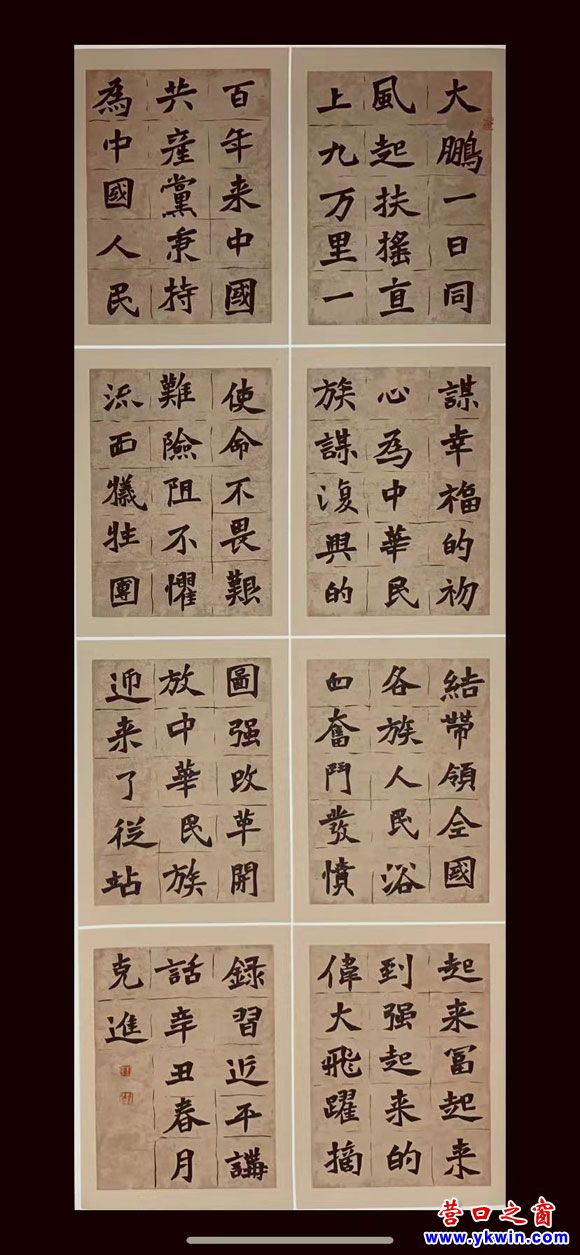 大鵬一日同
風起扶搖直
上九万里一
百年来中國
共産黨秉持
為中國人民
謀幸福的初
心為中華民
族謀復興的
使命不畏艱
難險阻不懼
流血犧牲團
結帶領全國
各族人民浴
血奮鬥發憤
圖强改革開
放中華民族
迎来了從站
起来冨起来
到强起来的
偉大飛躍摘
錄習近平講
話辛丑春月
克進
营口之窗
www.ykwin.com